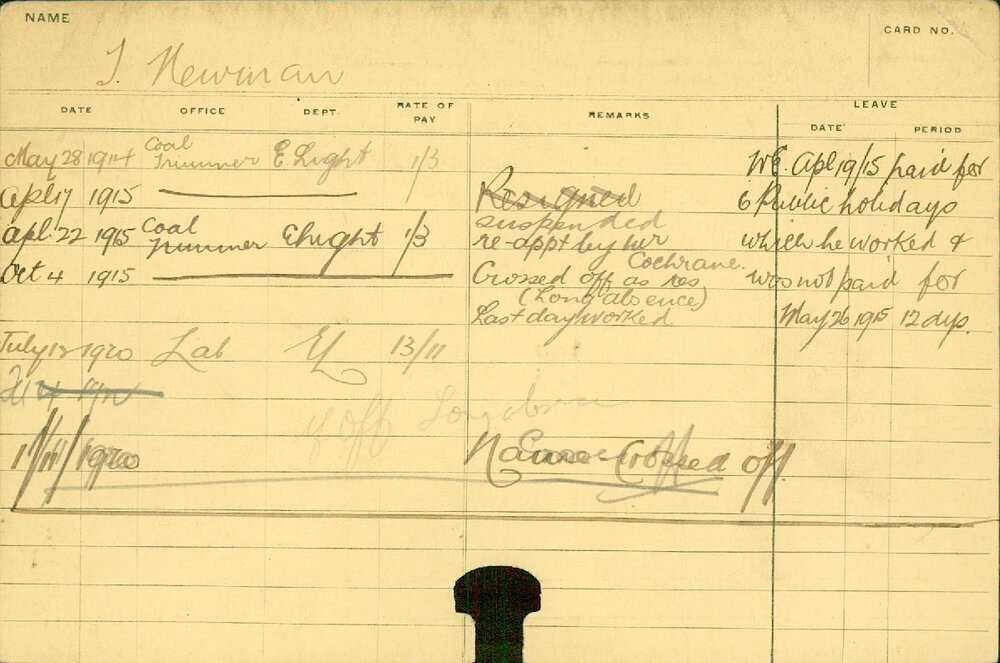 NAME
CARD NO.
J. Newman
DATE OFFICE DEPT. RATE OF PAY REMARKS LEAVE
DATE PERIOD
May 28 1914 Coal Trimmer E. Light 1/3
WE. Apl 19/15 paid for
Apl 17 1915 Resigned
6 Public holidays
suspended
Apl. 22 1915 Coal Trimmer Elight 1/3 re-appt by Mr Cochrane.
which he worked &
Oct 4 1915 Crossed off as res
was not paid for
(Long absence)
Last day worked
May 26 1915 12 dys.
July 12 1920 Lab EL 13/11
off Long absence
1/11/1920 Name Crossed off